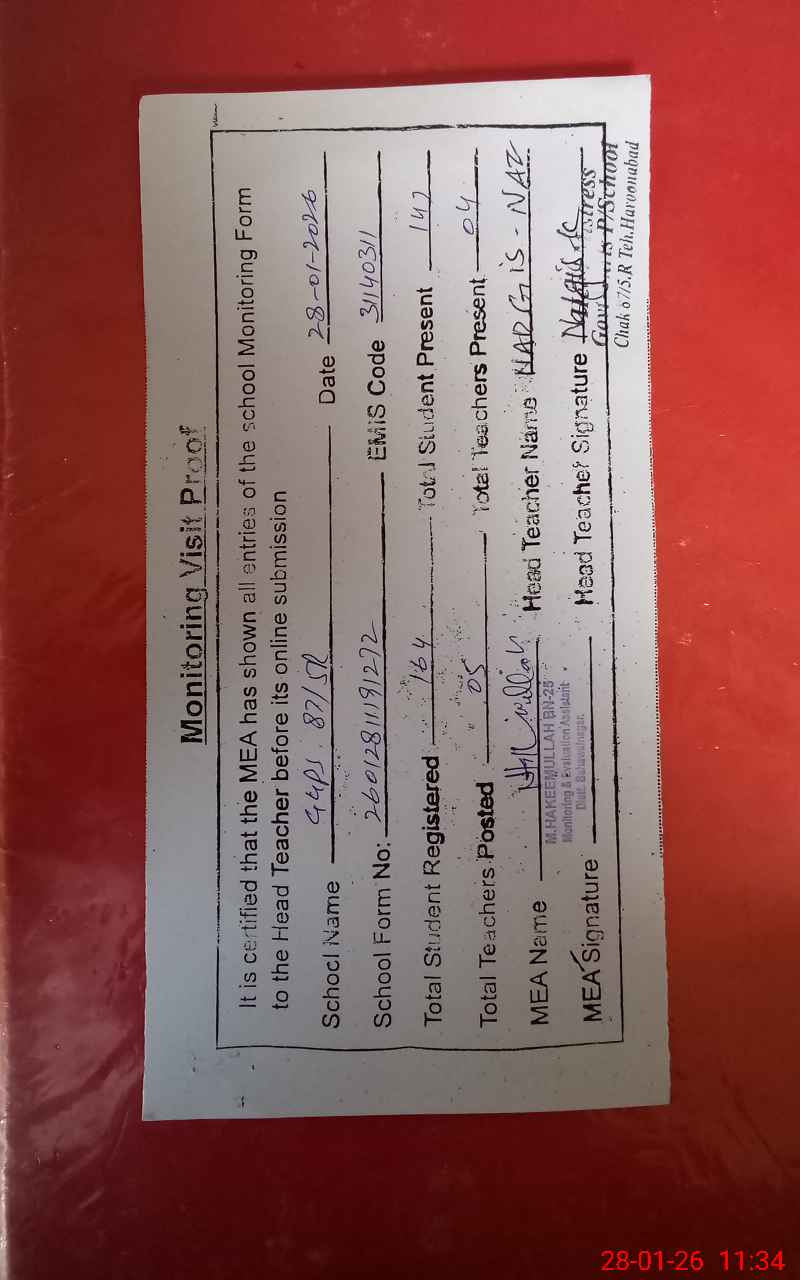 Monitoring Visit Proof
It is certified that the MEA has shown all entries of the school Monitoring Form
to the Head Teacher before its online submission
School Name GGPS. 87/5R Date 28-01-2026
School Form No: 26012811191272 EMIS Code 31140311
Total Student Registered 164 Total Student Present 147
Total Teachers Posted 05 Total Teachers Present 04
MEA Name Head Teacher Name NARGIS-NAZ
M.HAKEEMULLAH BN-25
Monitoring & Evaluation Assistant
Distt. Bahawalnagar.
MEA Signature Head Teacher Signature
P/School
Chak 87/5.R Teh.Haroonabad
28-01-26 11:34